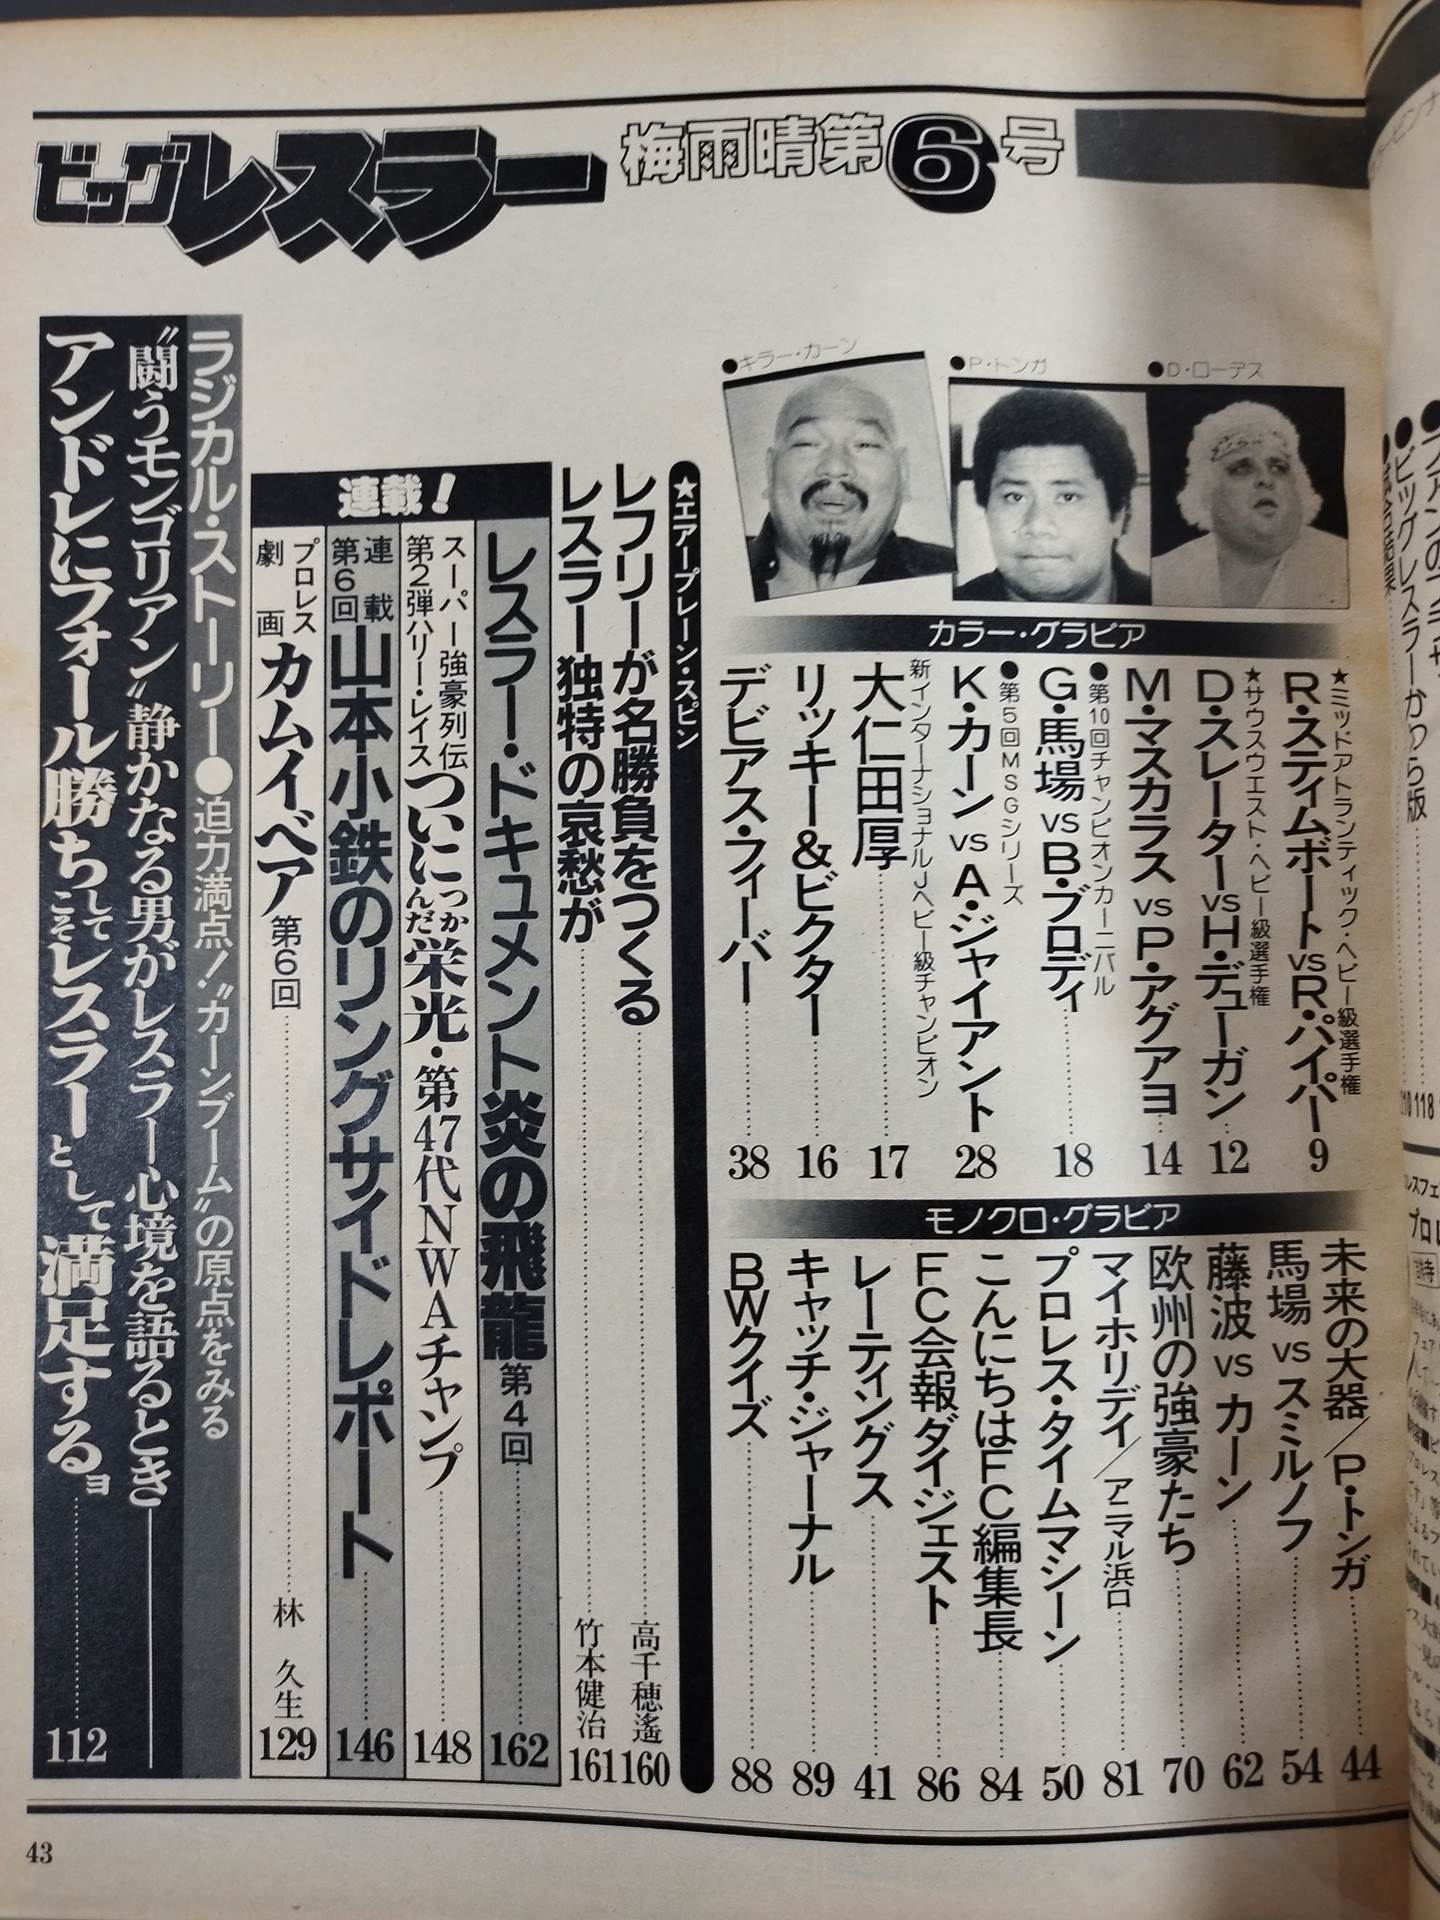 ビッグレスラー 梅雨晴第6号
●キラー・カーン
●P・トンガ
●D・ローデス
カラー・グラビア
★ミッドアトランティック・ヘビー級選手権
R・スティムボートvsR・パイパー 9
★サウスウエスト・ヘビー級選手権
D・スレーターvsH・デューガン 12
M・マスカラスvsP・アグアヨ 14
●第10回チャンピオンカーニバル
G・馬場vsB・ブロディ 18
●第5回MSGシリーズ
K・カーンvsA・ジャイアント 28
新インターナショナルJヘビー級チャンピオン
大仁田厚 17
リッキー&ビクター 16
デビアス・フィーバー 38
モノクロ・グラビア
未来の大器/P・トンガ 44
馬場vsスミルノフ 54
藤波vsカーン 62
欧州の強豪たち 70
マイホリデイ/アニマル浜口 81
プロレス・タイムマシーン 50
こんにちはFC編集長 84
FC会報ダイジェスト 86
レーティングス 41
キャッチ・ジャーナル 89
BWクイズ 88
★エアープレーン・スピン
レフリーが名勝負をつくる 高千穂遙 160
レスラー独特の哀愁が 竹本健治 161
連載!
レスラー・ドキュメント炎の飛龍 第4回 162
スーパー強豪列伝
第2弾ハリー・レイス
ついにつかんだ栄光・第47代NWAチャンプ 148
連載第6回
山本小鉄のリングサイドレポート 146
プロレス劇画
カムイベア 第6回 林 久生 129
ラジカル・ストーリー●迫力満点!“カーンブーム”の原点をみる
“闘うモンゴリアン”静かなる男がレスラー心境を語るとき
アンドレにフォール勝ちしてこそレスラーとして満足するョ 112
43
ビッグレスラーかわら版
210 118